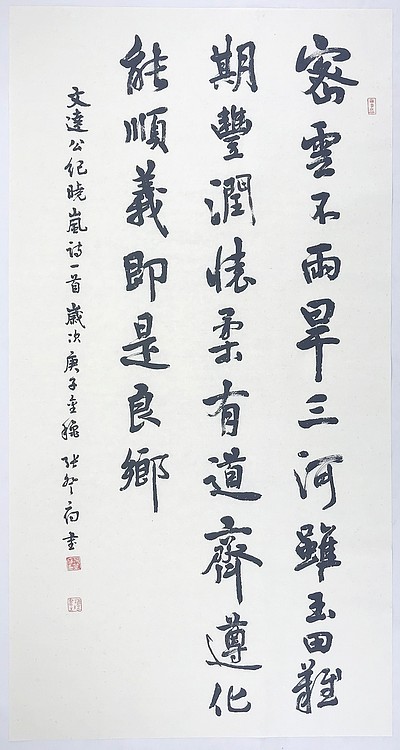 密雲不雨旱三河雖玉田難
期豐潤懷柔有道齊遵化
能順義即是良鄉
文達公纪晓嵐诗一首歲次庚子金穐